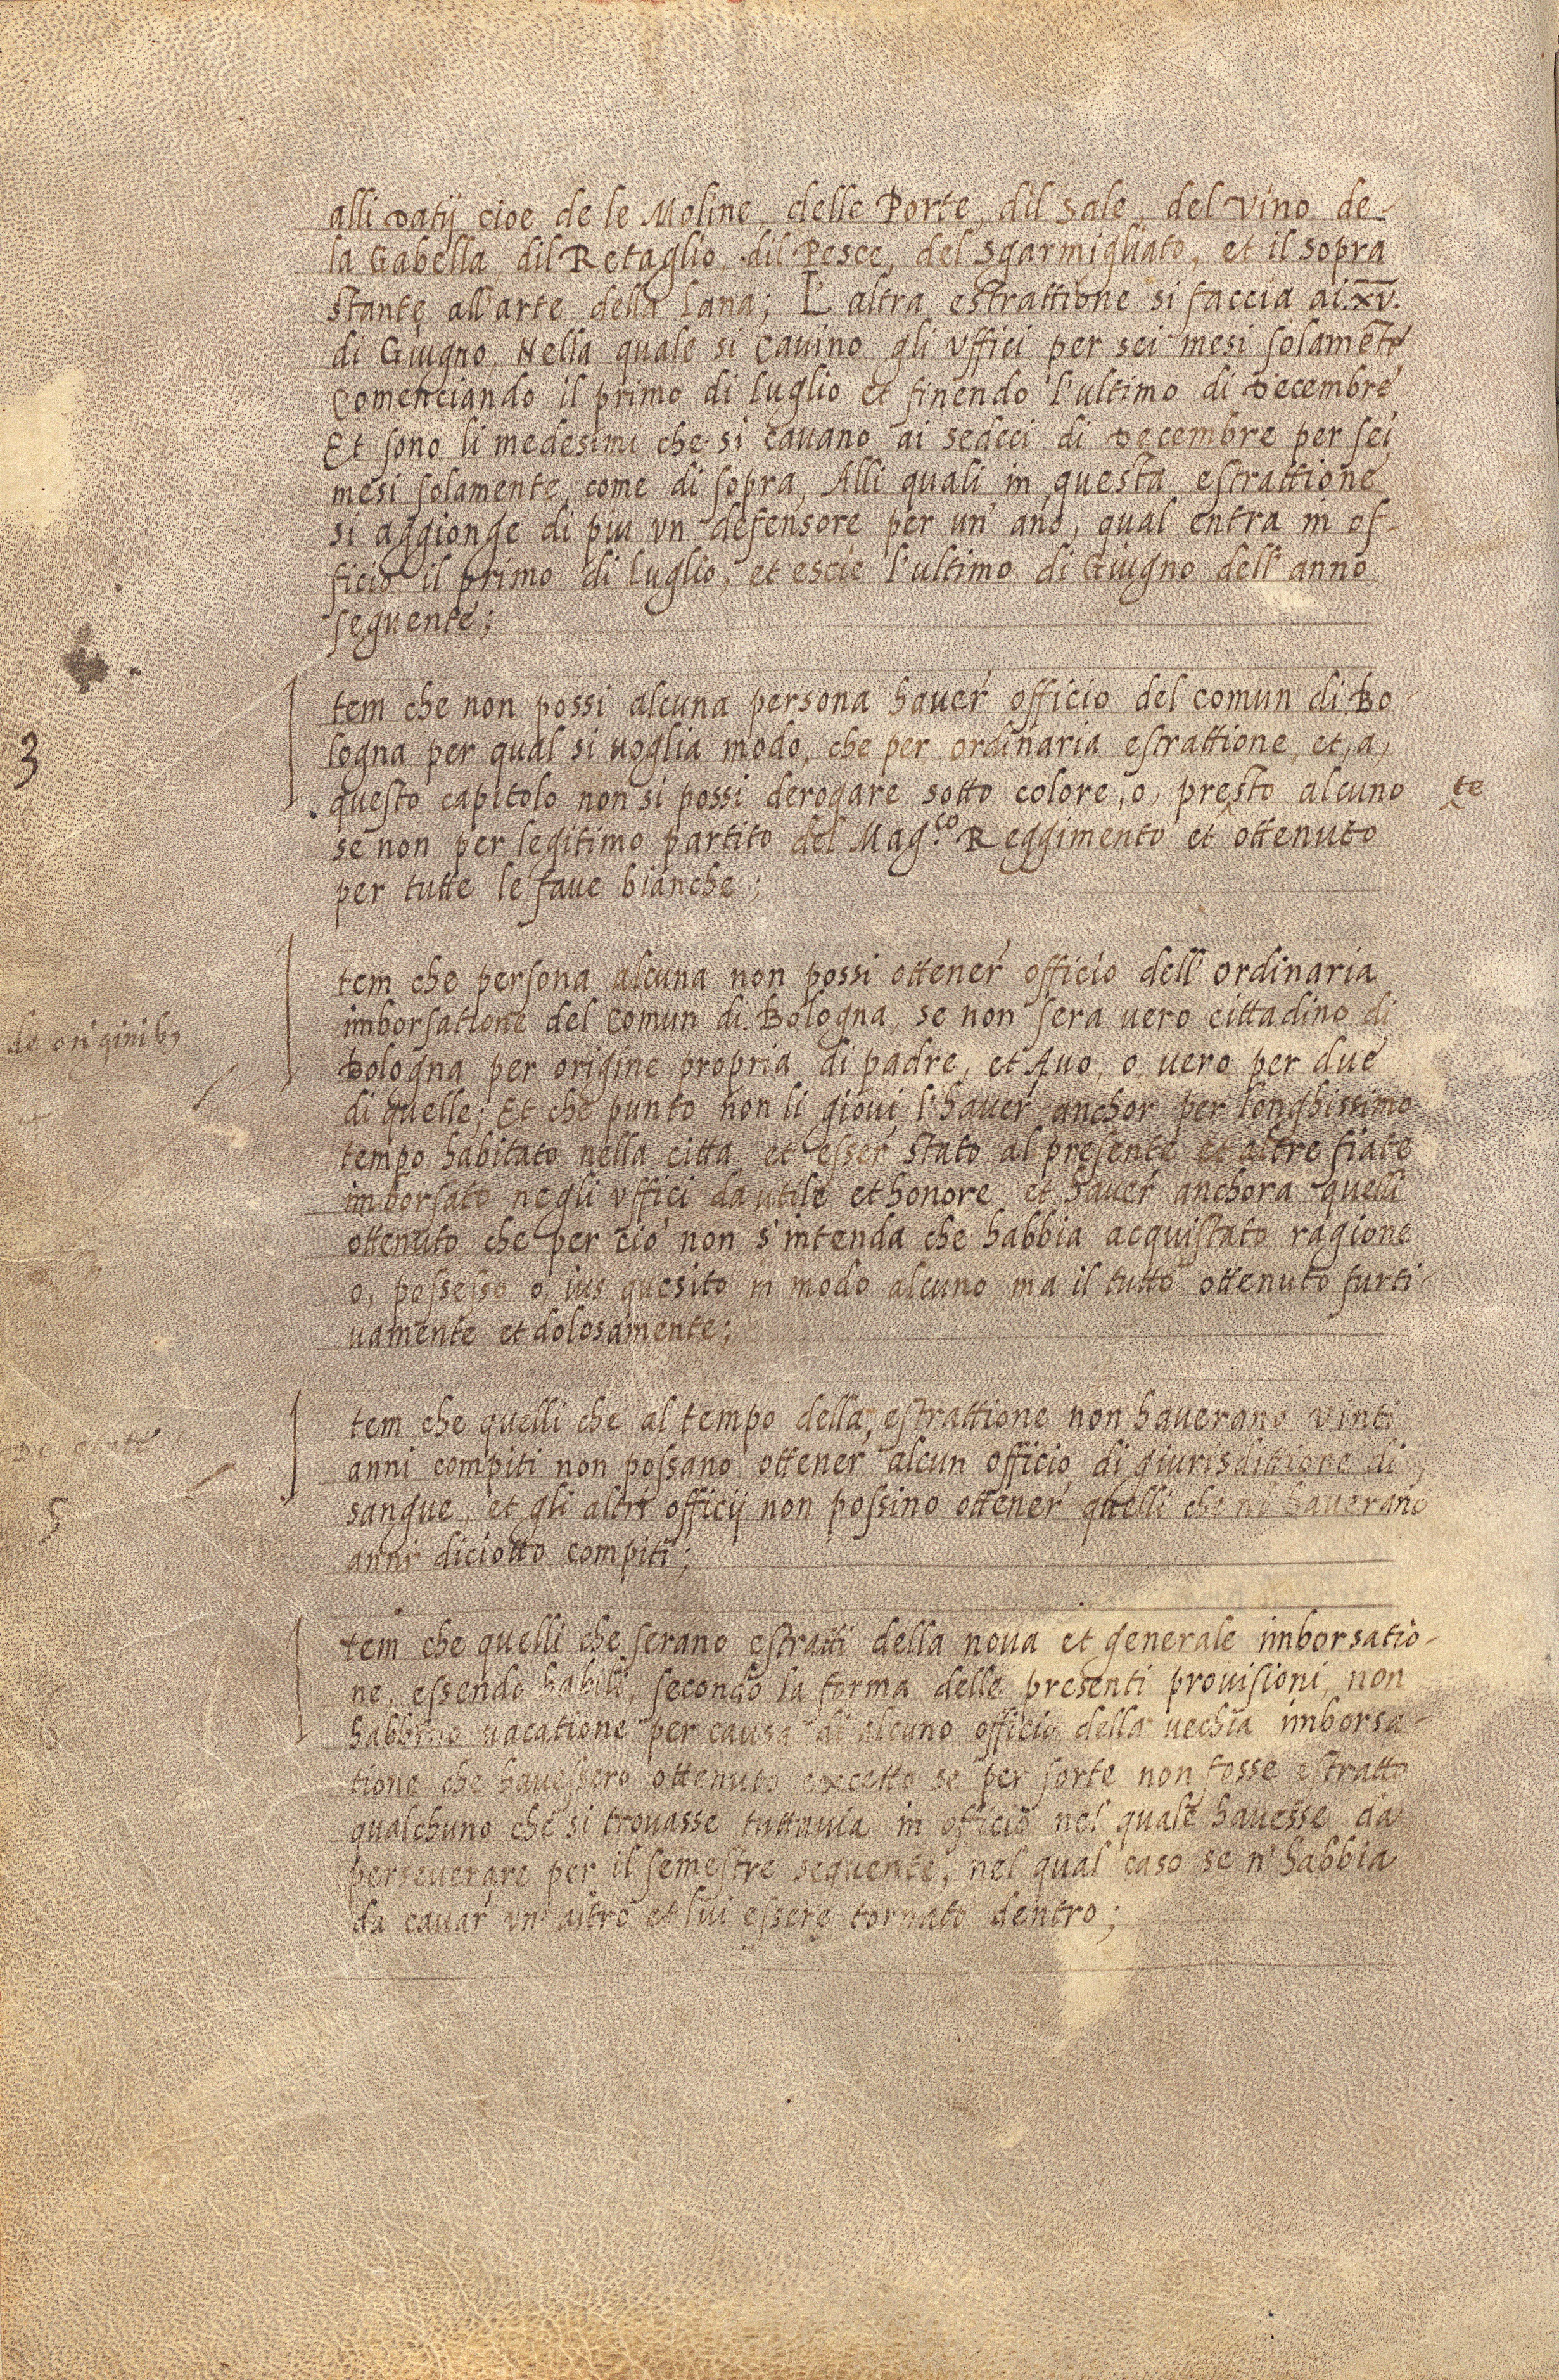 alli datij cioe de le Moline, delle Porte, dil sale, del vino de-
la Gabella dil Retaglio, dil Pesce, del sgarmigliato, et il sopra
stante all'arte della lana; L'altra estrattione si faccia ai .xv.
di Giugno, Nella quale si cavino gli vffici per sei mesi solamẽte
Comenciando il primo di luglio et finendo l'ultimo di decembre
Et sono li medesimi che si cauano ai sedeci di decembre per sei
mesi solamente, come di sopra, Alli quali in questa estrattione
si aggionge di piu vn defensore per un' año, qual entra in of-
ficio il primo di luglio, et escie l'ultimo di Giugno dell'anno
seguente;
3
Item che non possi alcuna persona hauer officio del comun di Bo-
logna per qual si uoglia modo, che per ordinaria estrattione, et, a,
questo capitolo non si possi derogare sotto colore, o, presto alcuno te
se non per legitimo partito del Mag.co Reggimento et ottenuto
per tutte le faue bianche;
de originibꝫ
Item che persona alcuna non possi ottener officio dell'ordinaria
imborsatione del comun di Bologna, se non sera uero cittadino di
Bologna per origine propria di padre, et Auo, o uero per due
di quelle; Et che punto non li gioui l'hauer anchor per longhissimo
tempo habitato nella citta et esser stato al presente et altre fiate
imborsato negli vffici da utile et honore et hauer anchora quelli
ottenuto che per cio non s'intenda che habbia acquistato ragione
o, possesso o, ius quesito in modo alcuno ma il tutto ottenuto furti-
uamente et dolosamente;
De etate
5
Item che quelli che al tempo della estrattione non haverano vinti
anni compiti non possano ottener alcun officio di giurisdittione di
sangue, et gli altri officij non possino ottener quelli che nõ haverano
anni diciotto compiti;
Item che quelli che serano estratti della noua et generale imborsatio-
ne, essendo habili, secondo la forma delle presenti prouisioni, non
habbino vacatione per causa di alcuno officio della uechia imborsa-
tione che havessero ottenuto excetto se per sorte non fosse estratto
qualchuno che si trouasse tuttauia in officio nel quale havesse da
perseuerare per il semestre sequente, nel qual caso se n'habbia
da cauar vn'altro et lui essere tornato dentro;